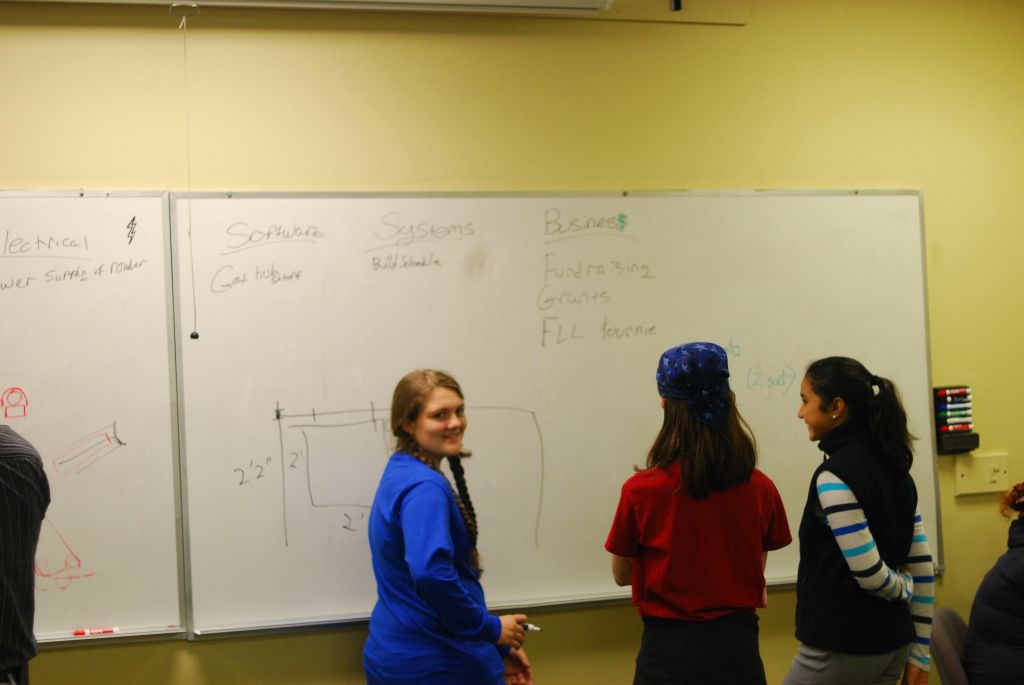 lectrical
wer Supply & router
Software
Get hub
Systems
Build Schedule
Business$
Fundraising
Grants
FLL tournie
2'2"
2'
2'